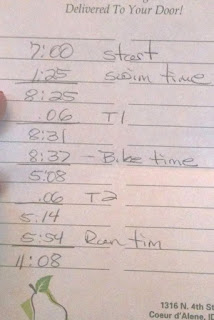 Delivered To Your Door!
7:00 Start
1:25 swim time
8:25
.06 T1
8:31
8:37 - Bike time
5:08
.06 T2
5:14
5:54 Run tim
11:08
1316 N. 4th St
Coeur d'Alene, ID